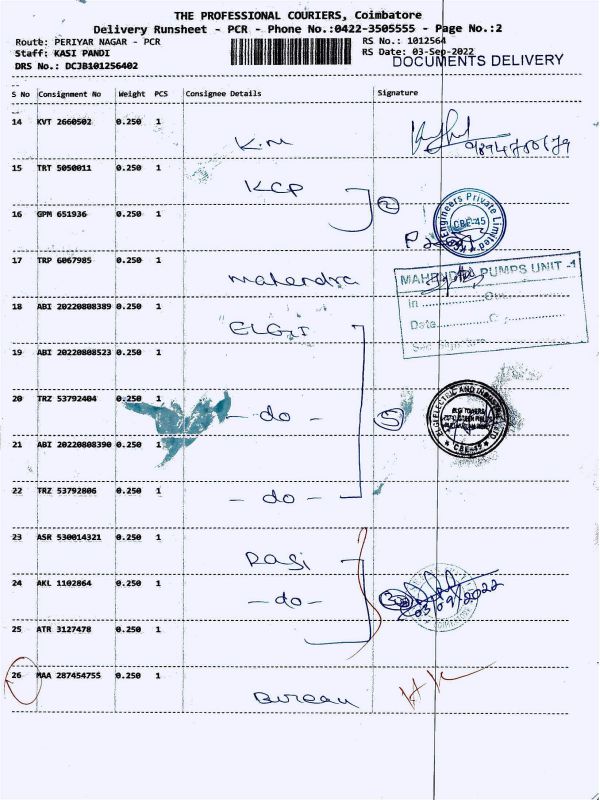 THE PROFESSIONAL COURIERS, Coimbatore
Delivery Runsheet - PCR - Phone No.:0422-3505555 - Page No.:2
Route: PERIYAR NAGAR - PCR
RS No.: 1012564
Staff: KASI PANDI
RS Date: 03-Sep-2022
DRS No.: DCJB101256402
DOCUMENTS DELIVERY
S No Consignment No Weight PCS Consignee Details Signature
14 KVT 2660502 0.250 1
K.M
15 TRT 5050011 0.250 1
KCP
16 GPM 651936 0.250 1
2
Engineers Private Limited
CBE-45
17 TRP 6067985 0.250 1
mahendra
MAHENDRA PUMPS UNIT -1
In
Out
Date
18 ABI 20220808389 0.250 1
ELGI
19 ABI 20220808523 0.250 1
20 TRZ 53792404 0.250 1
- do -
5
ELGI TOWERS
CBE-45
21 ABI 20220808390 0.250 1
22 TRZ 53792806 0.250 1
- do -
23 ASR 530014321 0.250 1
Rasi
24 AKL 1102864 0.250 1
- do -
3
03/09/2022
25 ATR 3127478 0.250 1
26 MAA 287454755 0.250 1
Bureau